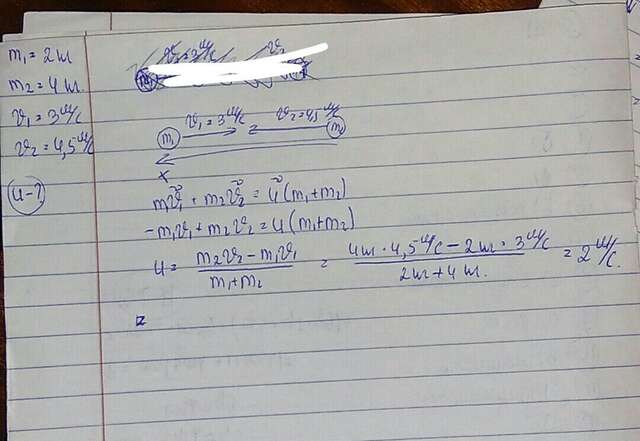 m₁ = 2 кг
m₂ = 4 кг
υ₁ = 3 м/с
υ₂ = 4,5 м/с
u - ?
υ₁ = 3 м/с υ₂
m₁
υ₁ = 3 м/с υ₂ = 4,5 м/с
m₁ m₂
x
m₁υ⃗₁ + m₂υ⃗₂ = u⃗ (m₁+m₂)
-m₁υ₁ + m₂υ₂ = u (m₁+m₂)
u = (m₂υ₂ - m₁υ₁)/(m₁+m₂) = (4 кг · 4,5 м/с - 2 кг · 3 м/с)/(2 кг + 4 кг) = 2 м/с.